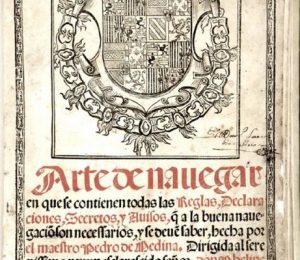 Arte de nauegar
en que se contienen todas las Reglas, Declara
ciones, Secretos, y Auisos, q̃ a la buena naue-
gaciõ son necessarios, y se deuẽ saber, hecha por
el maestro Pedro de Medina. Dirigida al sere